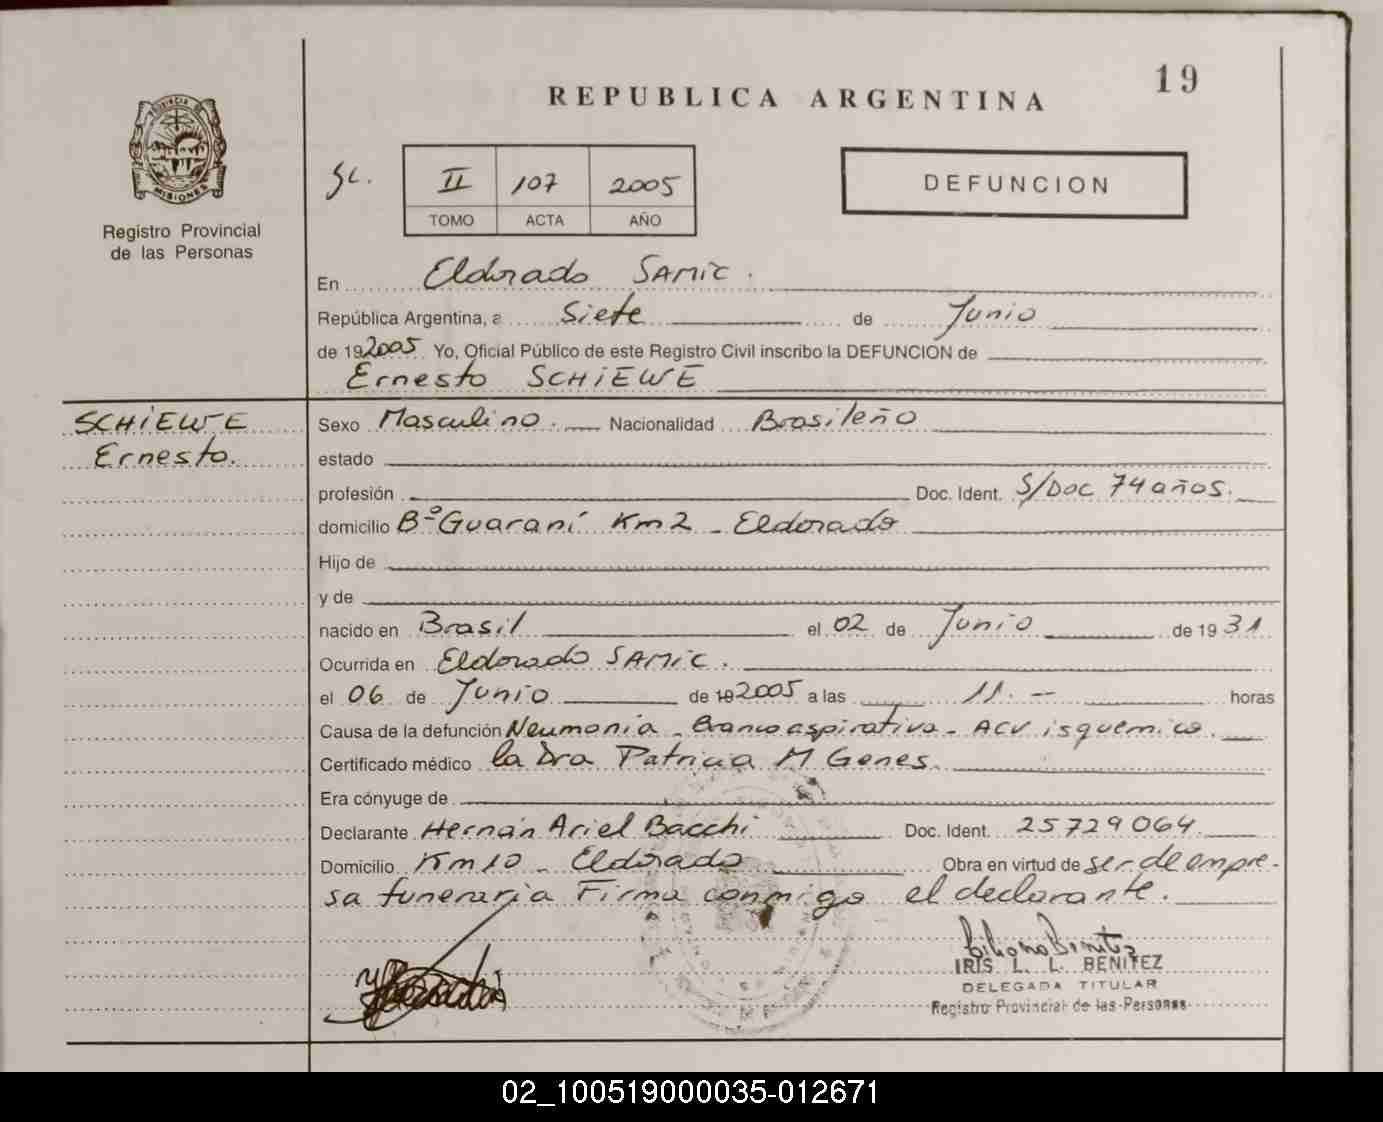 19
REPUBLICA ARGENTINA
PROVINCIA DE MISIONES
Registro Provincial
de las Personas
Sc. II 107 2005
TOMO ACTA AÑO
DEFUNCION
En Eldorado SAMIC.
República Argentina, a Siete de Junio
de 192005 Yo, Oficial Público de este Registro Civil inscribo la DEFUNCION de
Ernesto SCHIEWE
SCHIEWE
Ernesto.
Sexo Masculino. Nacionalidad Brasileño
estado
profesión Doc. Ident. S/Doc 74 años.
domicilio Bº Guaraní Km 2 - Eldorado
Hijo de
y de
nacido en Brasil el 02 de Junio de 1931
Ocurrida en Eldorado SAMIC.
el 06 de Junio de 192005 a las 11.-- horas
Causa de la defunción Neumonia - Broncoaspirativa - ACV isquemico.
Certificado médico la Dra Patricia M Genes.
Era cónyuge de
Declarante Hernán Ariel Bacchi Doc. Ident. 25729064.
Domicilio Km 10 - Eldorado Obra en virtud de ser de empre-
sa funeraria Firma conmigo el declarante.
IRIS L. L. BENITEZ
DELEGADA TITULAR
Registro Provincial de las Personas
02_100519000035-012671